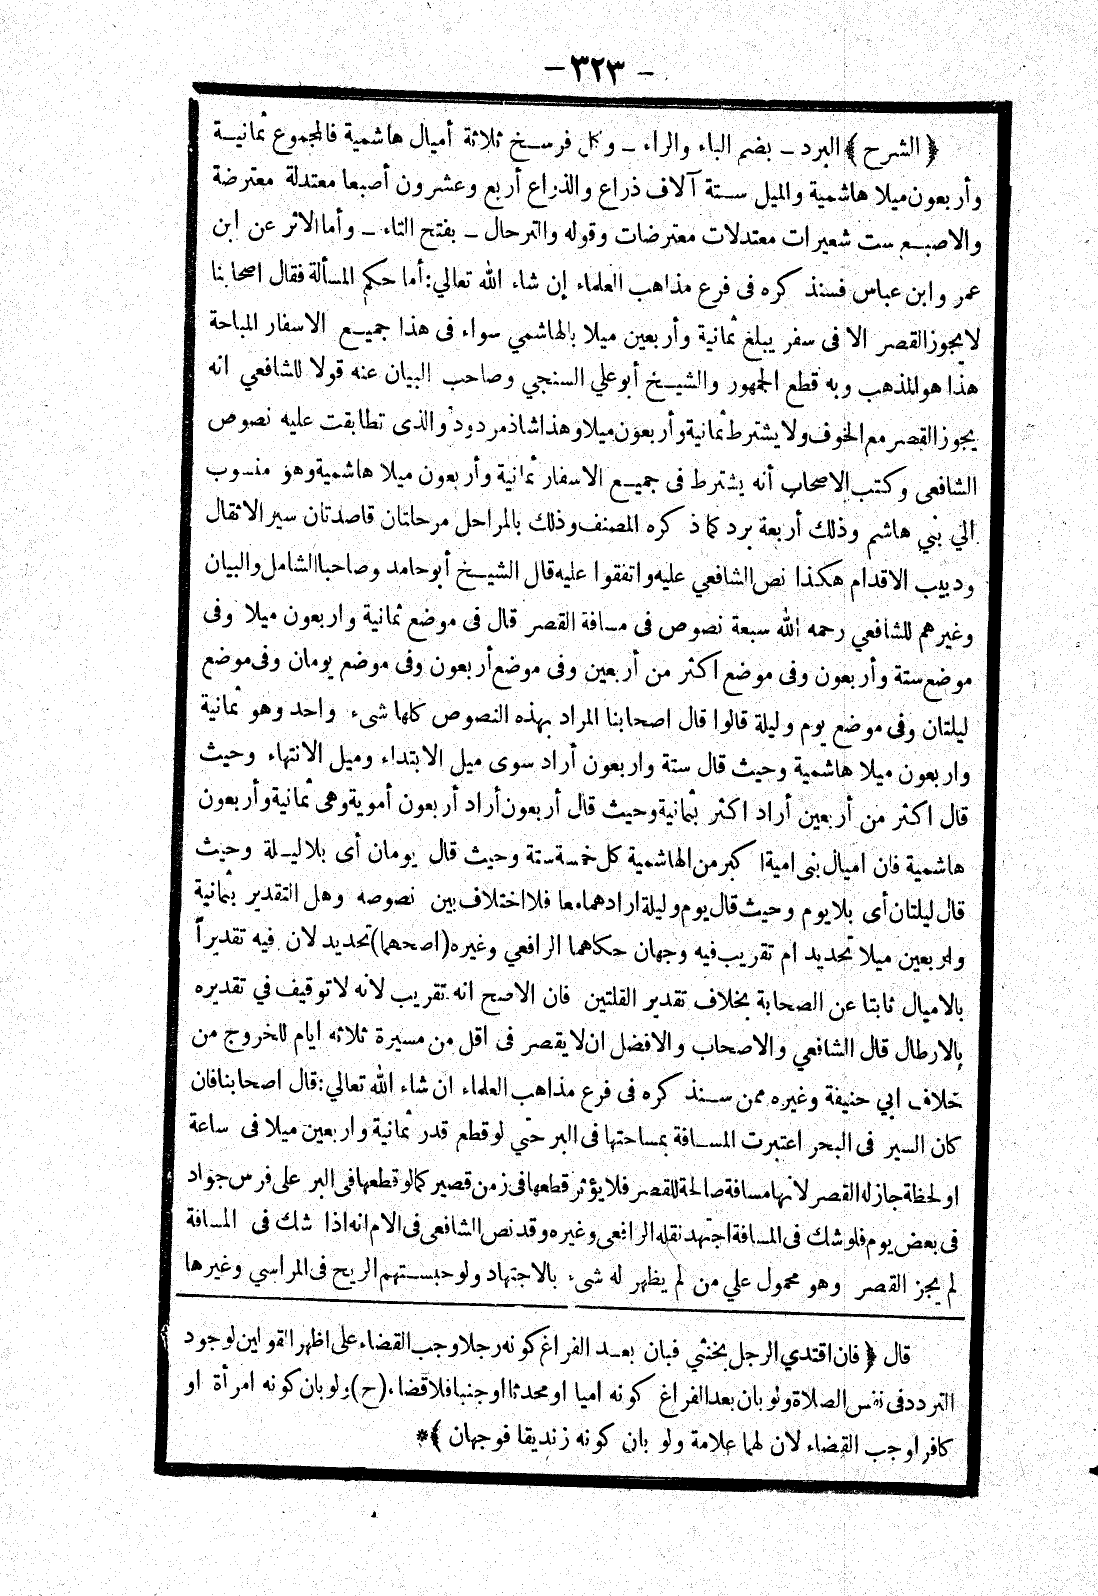 - ٣٢٣ -
﴿ الشرح ﴾ البرد - بضم الباء والراء - وكل فرسخ ثلاثة أميال هاشمية فالمجموع ثمانية
وأربعون ميلا هاشمية والميل ستة آلاف ذراع والذراع أربع وعشرون أصبعا معتدلة معترضة
والاصبع ست شعيرات معتدلات معترضات وقوله والترحال - بفتح التاء - وأما الاثر عن ابن
عمر وابن عباس فسنذكره فى فرع مذاهب العلماء إن شاء الله تعالي: أما حكم المسألة فقال اصحابنا
لا يجوز القصر الا فى سفر يبلغ ثمانية وأربعين ميلا بالهاشمي سواء فى هذا جميع الاسفار المباحة
هذا هو المذهب وبه قطع الجمهور والشيخ أبو علي السنجي وصاحب البيان عنه قولا للشافعي انه
يجوز القصر مع الخوف ولا يشترط ثمانية وأربعون ميلا وهذا شاذ مردود والذى تطابقت عليه نصوص
الشافعى وكتب الاصحاب أنه يشترط فى جميع الاسفار ثمانية وأربعون ميلا هاشمية وهو منسوب
الي بني هاشم وذلك أربعة برد كما ذكره المصنف وذلك بالمراحل مرحلتان قاصدتان سير الاثقال
ودبيب الاقدام هكذا نص الشافعي عليه واتفقوا عليه قال الشيخ أبو حامد وصاحبا الشامل والبيان
وغيرهم للشافعي رحمه الله سبعة نصوص فى مسافة القصر قال فى موضع ثمانية واربعون ميلا وفى
موضع ستة وأربعون وفى موضع اكثر من أربعين وفى موضع أربعون وفى موضع يومان وفى موضع
ليلتان وفى موضع يوم وليلة قالوا قال اصحابنا المراد بهذه النصوص كلها شىء واحد وهو ثمانية
واربعون ميلا هاشمية وحيث قال ستة واربعون أراد سوى ميل الابتداء وميل الانتهاء وحيث
قال اكثر من أربعين أراد اكثر بثمانية وحيث قال أربعون أراد أربعون أموية وهى ثمانية وأربعون
هاشمية فان اميال بنى امية اكبر من الهاشمية كل خمسة ستة وحيث قال يومان أى بلا ليلة وحيث
قال ليلتان أى بلا يوم وحيث قال يوم وليلة ارادهما معا فلا اختلاف بين نصوصه وهل التقدير بثمانية
واربعين ميلا تحديد ام تقريب فيه وجهان حكاهما الرافعي وغيره (اصحهما) تحديد لان فيه تقديراً
بالاميال ثابتا عن الصحابة بخلاف تقدير القلتين فان الاصح انه تقريب لانه لا توقيف في تقديره
بالارطال قال الشافعي والاصحاب والافضل ان لا يقصر فى اقل من مسيرة ثلاثه ايام للخروج من
خلاف ابي حنيفة وغيره ممن سنذكره فى فرع مذاهب العلماء ان شاء الله تعالي: قال اصحابنا فان
كان السير فى البحر اعتبرت المسافة بمساحتها فى البر حتي لو قطع قدر ثمانية واربعين ميلا فى ساعة
او لحظة جاز له القصر لانها مسافة صالحة للقصر فلا يؤثر قطعها فى زمن قصير كما لو قطعها فى البر على فرس جواد
فى بعض يوم فلو شك فى المسافة اجتهد نقله الرافعى وغيره وقد نص الشافعى فى الام انه اذا شك فى المسافة
لم يجز القصر وهو محمول علي من لم يظهر له شىء بالاجتهاد ولو حبستهم الريح فى المراسي وغيرها
قال ﴿ فان اقتدي الرجل بخنثي فبان بعد الفراغ كونه رجلا وجب القضاء على اظهر القولين لوجود
التردد فى نفس الصلاة ولو بان بعد الفراغ كونه اميا او محدثا او جنبا فلا قضاء (ح) ولو بان كونه امرأة او
كافر اوجب القضاء لان لهما علامة ولو بان كونه زنديقا فوجهان ﴾*